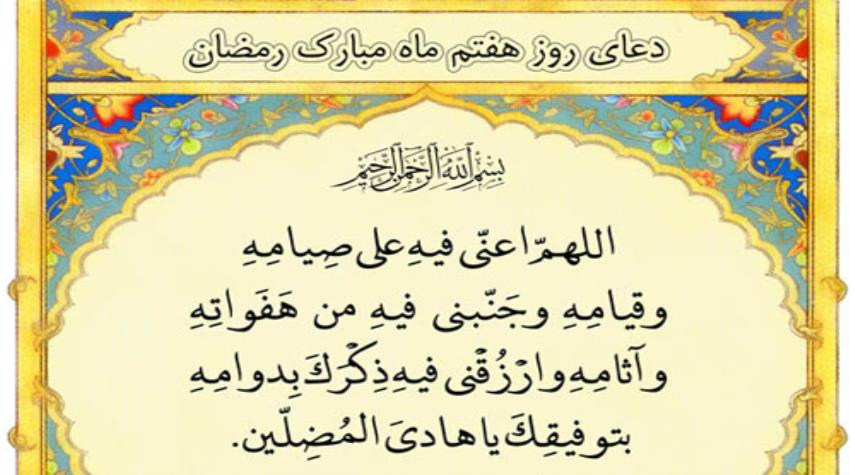 دعای روز هفتم ماه مبارک رمضان
بِسْمِ اللهِ الرَّحْمٰنِ الرَّحِيْمِ
اللهمّ اعنّی فیهِ علی صِیامِهِ
وقیامِهِ وجَنّبنی فیهِ من هَفَواتِهِ
وآثامِهِ وارْزُقْنی فیهِ ذِکْرَكَ بِدوامِهِ
بتوفیقِكَ یا هادیَ المُضِلّین.